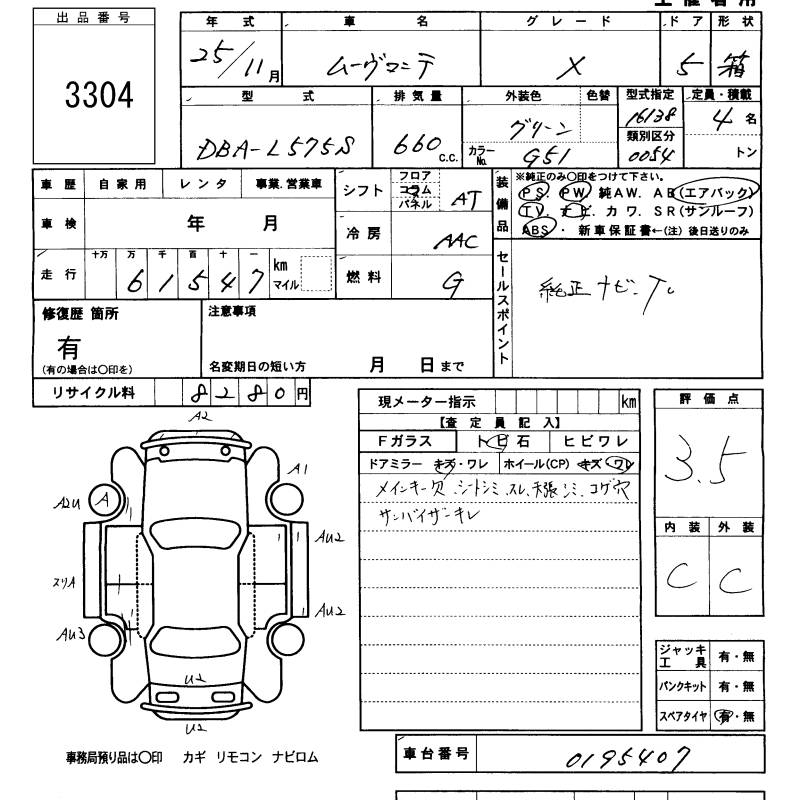 主催者用
出品番号
3304
年式 車名 グレード ドア 形状
25/11月 ムーヴコンテ X 5 箱
型式 排気量 外装色 色替 型式指定 定員・積載
DBA-L575S 660 C.C. グリーン 16138 4名
カラーNo. G51 類別区分 0054 トン
車歴 自家用 レンタ 事業.営業車
車検 年 月
走行 十万 万 千 百 十 一
61547 km マイル
シフト フロア コラム パネル AT
冷房 AAC
燃料 G
装備品 ※純正のみ○印をつけて下さい。
PS. PW. 純AW. AB(エアバック)
TV. ナビ. カワ. SR(サンルーフ)
ABS・ 新車保証書←(注) 後日送りのみ
セールスポイント
純正ナビ、TV
修復歴 箇所
有
(有の場合は○印を)
注意事項
名変期日の短い方 月 日まで
リサイクル料 8280円
現メーター指示 km
【査定員記入】
Fガラス トビ石 ヒビワレ
ドアミラー キズ・ワレ ホイール(CP) キズ ワレ
メインキー欠.シートシミ.スレ.天張シミ.コゲ穴
サンバイザーキレ
評価点
3.5
内装 外装
C C
A2
A1
A2U
A
AU2
スリA
AU2
AU3
U2
U2
ジャッキ工具 有・無
パンクキット 有・無
スペアタイヤ 有・無
事務局預り品は○印 カギ リモコン ナビロム
車台番号 0195407